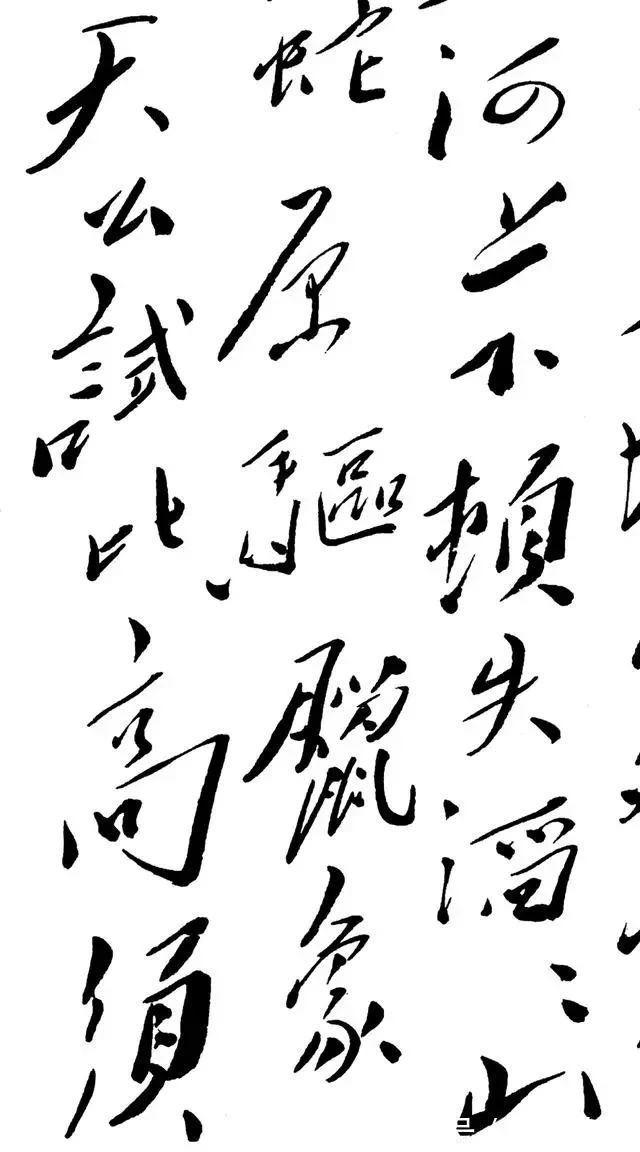 河上下頓失滔〻山
蛇原驅臘象
天公試比高須